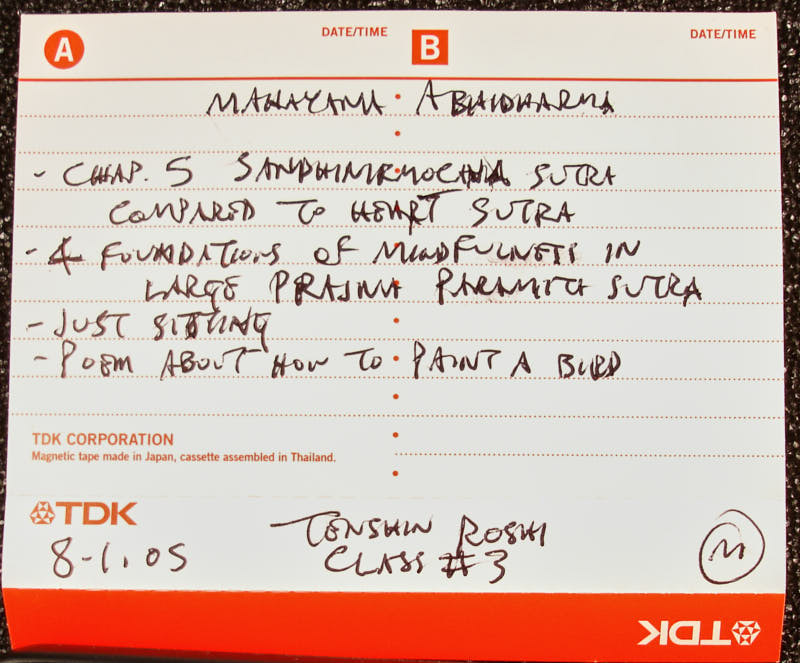 A DATE/TIME B DATE/TIME
MAHAYANA ABHIDHARMA
- CHAP. 5 SANDHINIRMOCHNA SUTRA
COMPARED TO HEART SUTRA
- 4 FOUNDATIONS OF MINDFULNESS IN
LARGE PRAJNA PARAMITA SUTRA
- JUST SITTING
- POEM ABOUT HOW TO PAINT A BIRD
TDK CORPORATION
Magnetic tape made in Japan, cassette assembled in Thailand.
TDK
TENSHIN ROSHI
8-1.05 CLASS #3
M
TDK